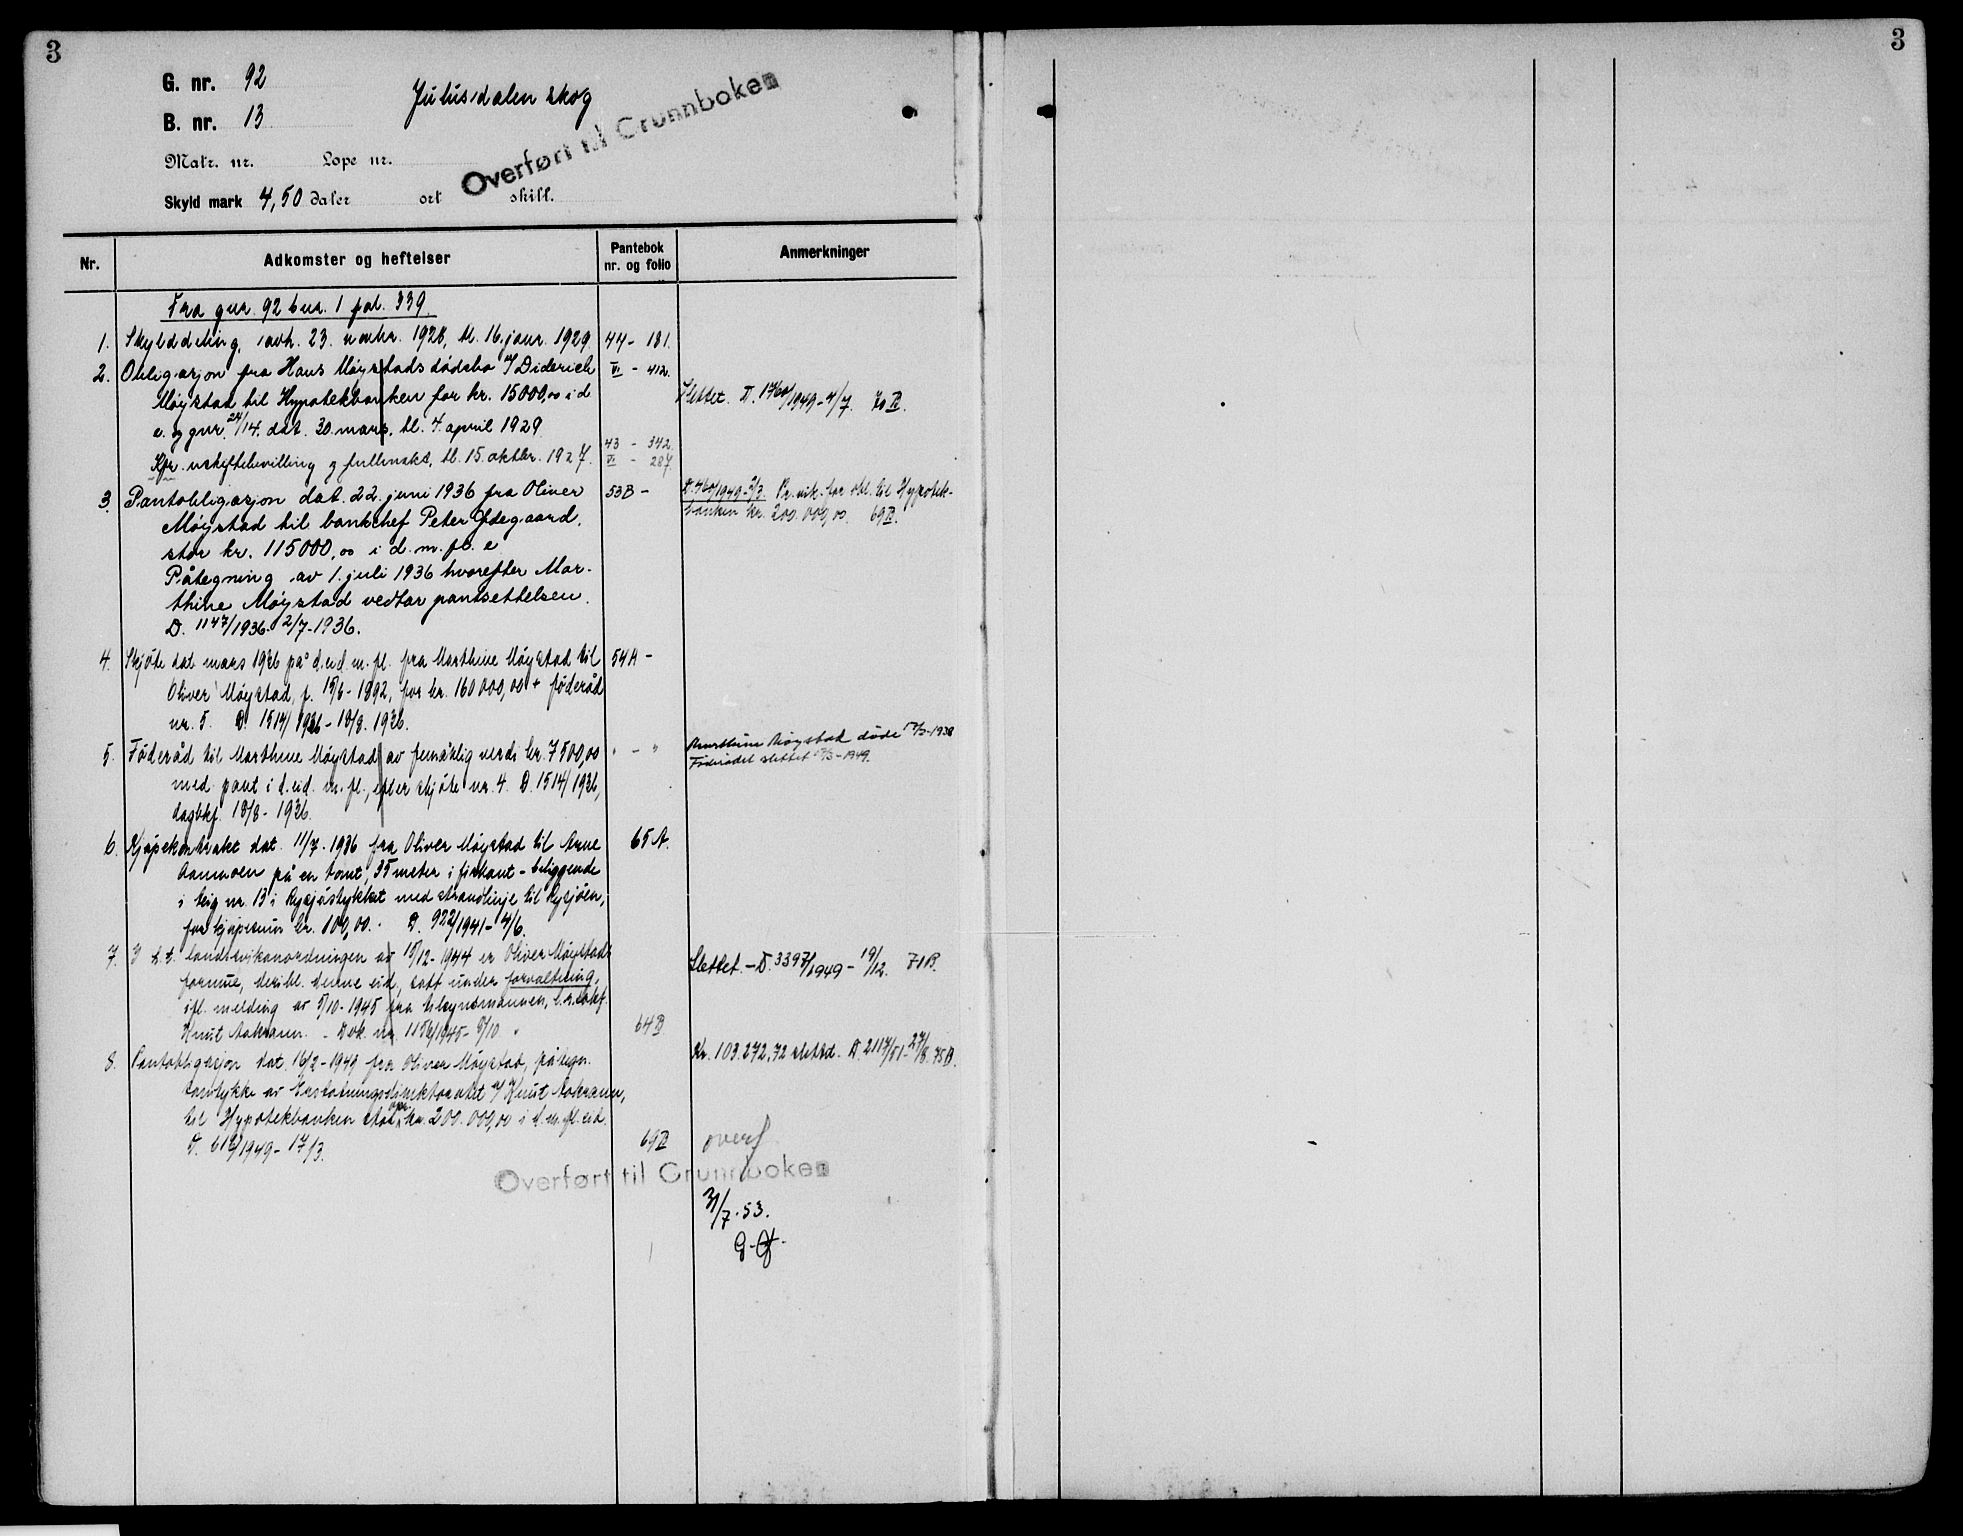 3
3
G. nr. 92
Julusdalen skog
B. nr. 13
Matr. nr. Løpe nr.
Overført til Grunnboken
Skyld mark 4,50 daler ort skill.
Nr. Adkomster og heftelser Pantebok nr. og folio Anmerkninger
Fra gnr. 92 bnr. 1 fol. 339.
1. Skylddeling, avh. 23. novbr. 1928, tl. 16. janr. 1929. 44 - 181.
2. Obligasjon fra Hans Møystads dødsbo v/ Diderich VI - 412.
Møystad til Hypotekbanken for kr. 15000,00 i d
e. og gnr. 24/14. dat. 30. mars, tl. 4. april 1929
Slettet. D. 1760/1949 - 4/7. 70 B.
43 - 342
Kfr. uskiftebevilling og fullmakt, tl. 15. oktbr. 1927. VI - 287
3. Pantobligasjon dat. 22. juni 1936 fra Oliver 53B -
Møystad til bankchef Peter Ødegaard,
stor kr. 115000,00 i d. m. fl. e
Påtegning av 1. juli 1936 hvorefter Mar-
thine Møystad vedtar pantsettelsen.
D. 1147/1936 - 2/7 - 1936.
D. 460/1949 - 2/3. Pr. vik. for obl. til Hypotek-
banken kr. 200.000,00. 69B.
4. Skjøte dat mars 1936 på d. eid. m. fl. fra Marthine Møystad til 54A -
Oliver Møystad, f. 15/6 - 1892, for kr. 160000,00 + føderåd
nr. 5. D. 1514/1936 - 18/8. 1936.
5. Føderåd til Marthine Møystad av femårlig verdi kr. 7500,00 " - "
med pant i d. eid. m. fl., efter skjøte nr. 4. D. 1514/1936,
dagbkf. 18/8 - 1936.
Marthine Møystad døde 1938
Føderådet slettet 1949.
6. Kjøpekontrakt dat. 11/7 - 1936 fra Oliver Møystad til Arne 65 A.
Aamoen på en tomt, 35 meter i firkant - beliggende
i teig nr. 13 i Rysjøstykket med strandlinje til Rysjøen,
for kjøpesum kr. 100,00. D. 922/1941 - 4/6.
7. I h.t. landssvikanordningen av 15/12 - 1944 er Oliver Møystads
formue, deribl. denne eid, satt under forvaltning,
ifl. melding av 5/10 - 1945 fra tilsynsmannen, l.r.sakf.
Knut Aakrann. - Dok. nr. 1156/1945 - 8/10. 64B
Slettet. - D. 3397/1949 - 19/12. 71B.
8. Pantobligasjon dat. 16/2 - 1949 fra Oliver Møystad, påtegn.
samtykke av Erstatningsdirektoratet v/ Knut Aakrann,
til Hypotekbanken stor kr. 200.000,00 i d. m. fl. eid.
D. 616/1949 - 17/3. 69B
Kr. 103.272,72 slettet. D. 2117/51 - 27/8. 75B.
overf
Overført til Grunnboken
31/7 - 53.